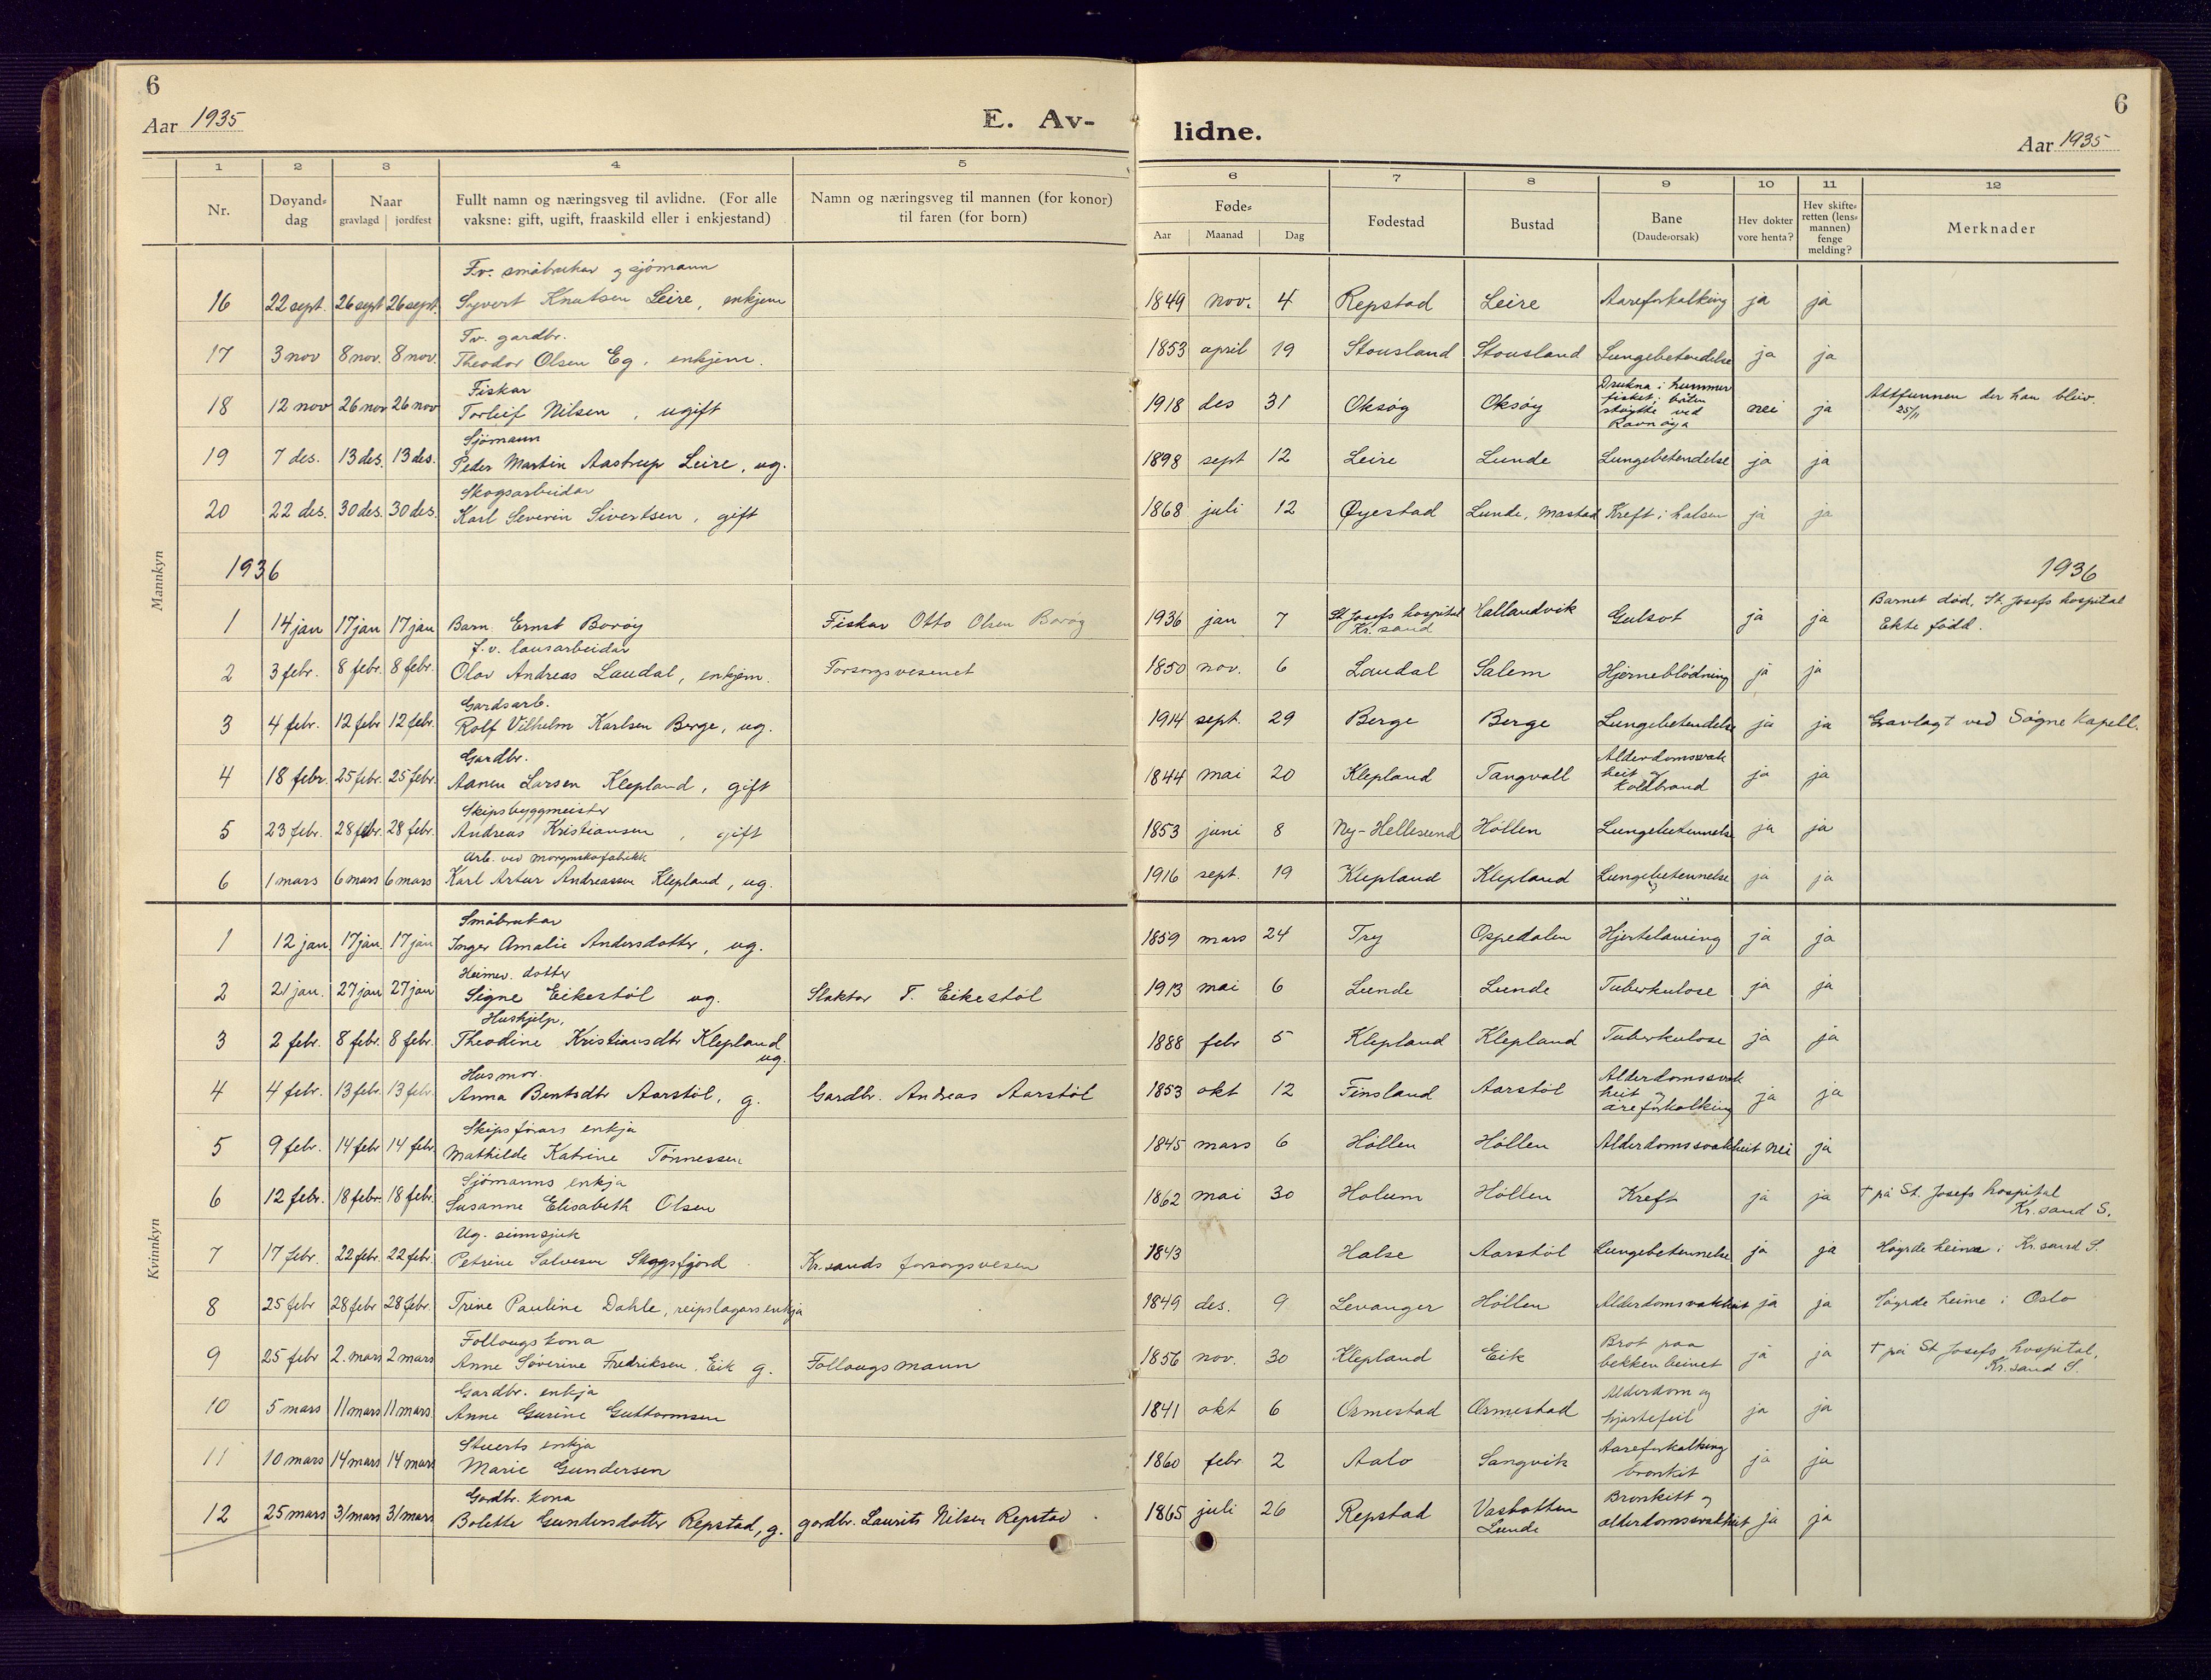 6
Aar 1935
E. Av-
lidne.
6
Aar 1935
1 2 3 4 5 6 7 8 9 10 11 12
Nr.
Døyand-
dag
Naar
gravlagd jordfest
Fullt namn og næringsveg til avlidne. (For alle
vaksne: gift, ugift, fraaskild eller i enkjestand)
Namn og næringsveg til mannen (for konor)
til faren (for born)
Føde-
Aar Maanad Dag
Fødestad
Bustad
Bane
(Daude-orsak)
Hev dokter
vore henta?
Hev skifte-
retten (lens-
mannen)
fenge
melding?
Merknader
Mannkyn
Fv. småbrukar og sjömann
16 22 sept. 26 sept 26 sept. Syvert Knutsen Leire, enkjem 1849 nov. 4 Repstad Leire Aareforkalking ja ja
Fv. gardbr.
17 3 nov 8 nov. 8 nov. Theodor Olsen Eg, enkjem. 1853 april 19 Stousland Stousland Lungebetendelse ja ja
Fiskar
18 12 nov 26 nov 26 nov Torleif Nilsen, ugift 1918 des 31 Oksöy Oksöy Drukna i hummer
fisket; båten
støytte ved
Ravnöya
nei ja Attfunnen der han bleiv.
25/11
Sjömann
19 7 des. 13 des. 13 des. Peder Martin Aastrup Leire, ug. 1898 sept 12 Leire Lunde Lungebetendelse ja ja
Skogsarbeidar
20 22 des. 30 des. 30 des. Karl Severin Sivertsen, gift 1868 juli 12 Øyestad Lunde, Mastad Kreft i halsen ja ja
1936
1936
1 14 jan 17 jan 17 jan Barn Ernst Boröy Fiskar Otto Olsen Boröy 1936 jan 7 St. Josefs hospital
Kr.sand
Hallandvik Gulsot ja ja Barnet död, St. Josefs hospital
Ekte född.
f.v. lausarbeidar
2 3 febr. 8 febr. 8 febr. Olav Andreas Laudal, enkjem. Forsorgsvesenet 1850 nov. 6 Laudal Salem Hjerneblödning ja ja
Gardsarb.
3 4 febr. 12 febr 12 febr. Rolf Vilhelm Karlsen Berge, ug. 1914 sept. 29 Berge Berge Lungebetendelse ja ja Gravlagt ved Søgne Kapell.
Gardbr.
4 18 febr. 25 febr. 25 febr. Aanen Larsen Klepland, gift 1844 mai 20 Klepland Tangvall Alderdomssvak
heit og
Koldbrand
ja ja
Skipsbyggmeister
5 23 febr. 28 febr. 28 febr. Andreas Kristiansen, gift 1853 juni 8 Ny-Hellesund Höllen Lungebetennelse ja ja
Arb. ved morgenskofabrikk
6 1 mars 6 mars 6 mars Karl Artur Andreassen Klepland, ug. 1916 sept. 19 Klepland Klepland Lungebetennelse ja ja
Kvinnkyn
Småbrukar
1 12 jan 17 jan. 17 jan Inger Amalie Andersdotter, ug. 1859 mars 24 Try Ospedalen Hjertelaming ja ja
Heimev. dotter
2 21 jan. 27 jan 27 jan Signe Eikestöl ug. Slaktar T. Eikestöl 1913 mai 6 Lunde Lunde Tuberkulose ja ja
Hushjelp,
3 2 febr. 8 febr. 8 febr. Theodine Kristiansdtr Klepland
ug.
1888 febr 5 Klepland Klepland Tuberkulose ja ja
Husmor.
4 4 febr. 13 febr. 13 febr. Anna Bentsdtr Aarstöl, g. Gardbr. Andreas Aarstöl 1853 okt 12 Finsland Aarstöl Alderdomssvak
heit og
åreforkalking
ja ja
Skipsförars enkja
5 9 febr. 14 febr 14 febr Mathilde Katrine Tönnessen 1845 mars 6 Höllen Höllen Alderdomssvakheit nei ja
Sjömanns enkja
6 12 febr. 18 febr. 18 febr. Susanne Elisabeth Olsen 1862 mai 30 Holum Höllen Kreft ja ja † på St. Josefs hospital
Kr.sand S.
Ug. sinnsjuk
7 17 febr. 22 febr. 22 febr. Petrine Salvesen Skoggsfjord Kr.sands forsorgsvesen 1843 Halse Aarstöl Lungebetennelse ja ja Höyrde heime i Kr.sand S.
8 25 febr 28 febr 28 febr. Trine Pauline Dahle, reipslagars enkja 1849 des. 9 Levanger Höllen Alderdomsvakheit ja ja Höyrde heime i Oslo
Follaugskona
9 25 febr 2. mars 2 mars Anne Söverine Fredriksen Eik g. Follaugsmann 1856 nov. 30 Klepland Eik Brot paa
bekkenbeinet
ja ja † på St Josefs hospital,
Kr.sand S.
Gardbr. enkja
10 5 mars 11 mars 11 mars. Anne Gurine Guttormsen 1841 okt 6 Ormestad Ormestad Alderdom og
hjartefeil
ja ja
Stuerts enkja
11 10 mars 14 mars 14 mars Marie Gundersen 1860 febr 2 Aalo Langvik Aareforkalking
bronkit
ja ja
Gardbr. kona
12 25 mars 31 mars 31 mars Bolette Gundersdotter Repstad, g. gardbr. Laurits Nilsen Repstad 1865 juli 26 Repstad Vasbotten
Lunde
Bronkitt og
alderdomssvakheit
ja ja